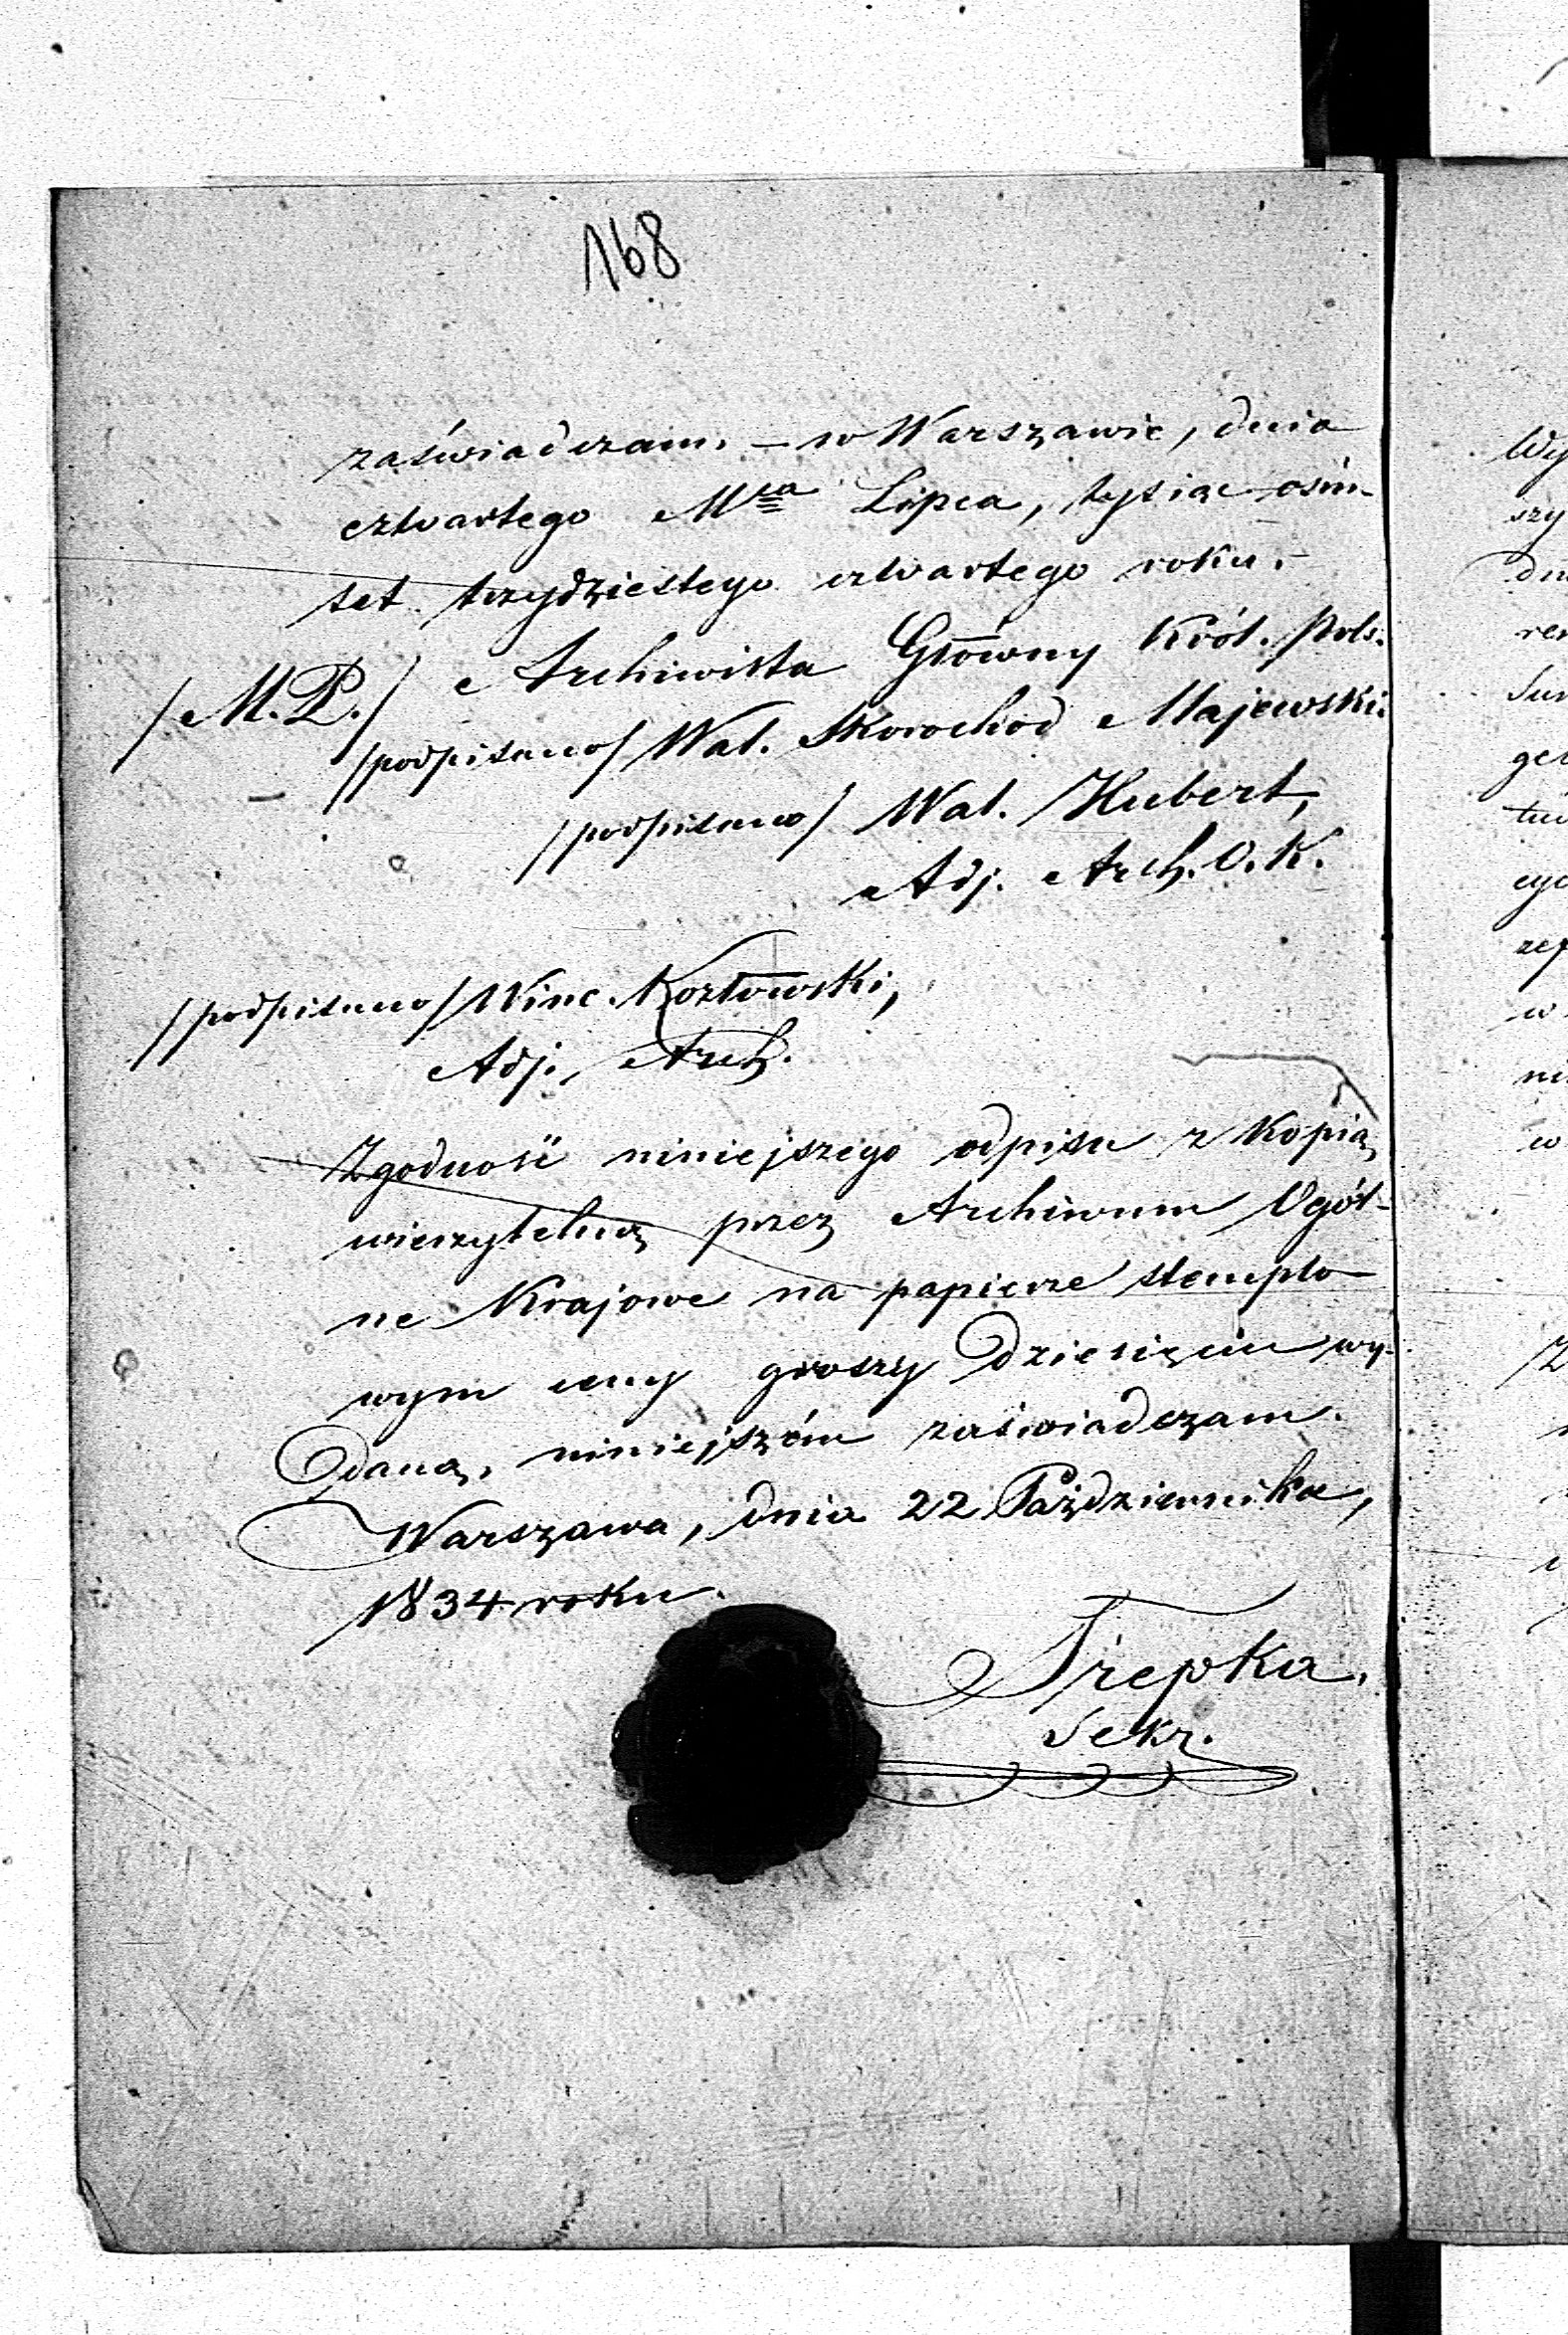 168
zaświadczam. – w Warszawie, dnia
czwartego Mca Lipca, tysiąc ośm-
set trzydziestego czwartego roku. –
/M.P./ Archiwista Główny Król. Pols.
/podpisano/ Wal. Skorochod Majewski.
/podpisano/ Wal. Hubert,
Adj. Arch. O. K.
/podpisano/ Winc. Kozłowski,
Adj. Arch.
Zgodność niniejszego odpisu z Kopią
wierzytelną przez Archiwum Ogól-
ne Krajowe na papierze stemplo-
wym ceny groszy dziesięciu wy-
daną, niniejszém zaświadczam.
Warszawa, dnia 22 Października,
1834 roku.
Trepka.
Sekr.